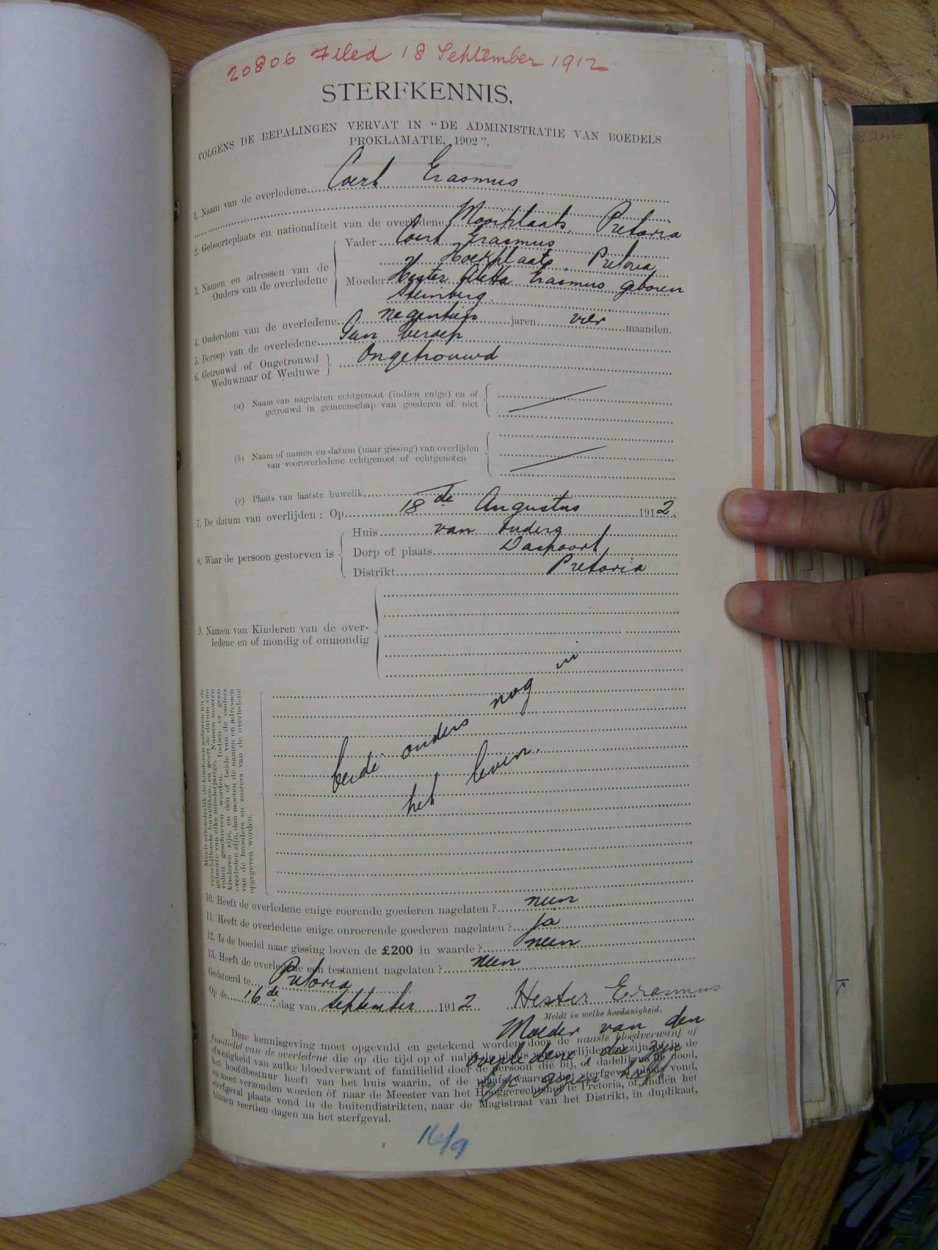 20806 Filed 18 September 1912
STERFKENNIS,
VOLGENS DE BEPALINGEN VERVAT IN "DE ADMINISTRATIE VAN BOEDELS
PROKLAMATIE, 1902".
1. Naam van de overledene Coert Erasmus
2. Geboorteplaats en nationaliteit van de overledene Mooiplaats, Pretoria
3. Namen en adressen van de Ouders van de overledene
Vader Coert Erasmus
Hoekplaats, Pretoria
Moeder Hester Aletta Erasmus geboren
Steinberg.
4. Ouderdom van de overledene negentien jaren vier maanden.
5. Beroep van de overledene Gen beroep
6. Getrouwd of Ongetrouwd
Weduwnaar of Weduwe Ongetrouwd
(a) Naam van nagelaten echtgenoot (indien enige) en of
getrouwd in gemeenschap van goederen of niet
(b) Naam of namen en datum (naar gissing) van overlijden
van vooroverledene echtgenoot of echtgenoten
(c) Plaats van laatste huwelik
7. De datum van overlijden : Op 18 de Augustus 1912
8. Waar de persoon gestorven is
Huis van ouders
Dorp of plaats Daspoort
Distrikt Pretoria
9. Namen van Kinderen van de over-
ledene en of mondig of onmondig
beide ouders nog in
het leven.
10. Heeft de overledene enige roerende goederen nagelaten ? neen
11. Heeft de overledene enige onroerende goederen nagelaten ? ja
12. Is de boedel naar gissing boven de £200 in waarde ? neen
13. Heeft de overledene een testament nagelaten ? neen
Gedateerd te Pretoria
Op de 16 de dag van September 1912 Hester Erasmus
Meldt in welke hoedanigheid.
Moeder van den
overledene
Deze kennisgeving moet opgevuld en getekend worden door de naaste bloedverwant of
familielid van de overledene die op die tijd op of
afwezigheid van zulke bloedverwant of familielid door de persoon die bij, of dadelik na de dood,
het hoofdbestuur heeft van het huis waarin, of de plaats waar de sterfgeval plaats vond,
en moet verzonden worden óf naar de Meester van het Hooggerechtshof te Pretoria, of indien het
sterfgeval plaats vond in de buitendistrikten, naar de Magistraat van het Distrikt, in duplikaat,
binnen veertien dagen na het sterfgeval.
16/9